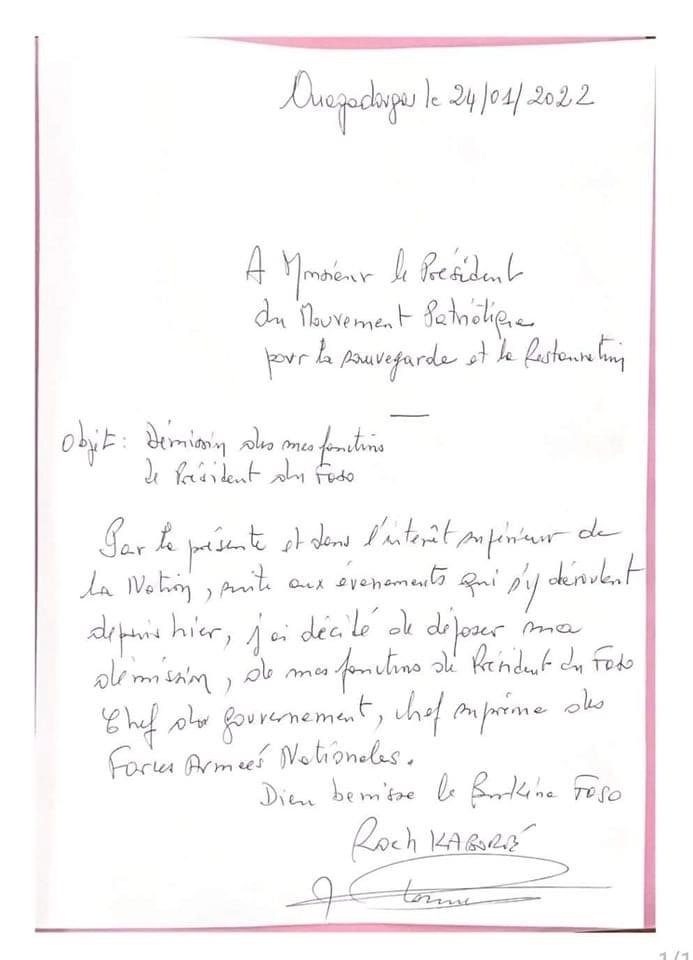 Ouagadougou le 24/01/2022
A Monsieur le Président
du Mouvement Patriotique
pour la sauvegarde et la Restauration
Objet : Démission de mes fonctions
de Président du Faso
Par la présente et dans l'intérêt supérieur de
la Nation, suite aux évenements qui s'y déroulent
depuis hier, j'ai décidé de déposer ma
démission, de mes fonctions de Président du Faso
Chef du gouvernement, chef suprême des
Forces Armées Nationales.
Dieu benisse le Burkina Faso
Roch KABORÉ
1/1